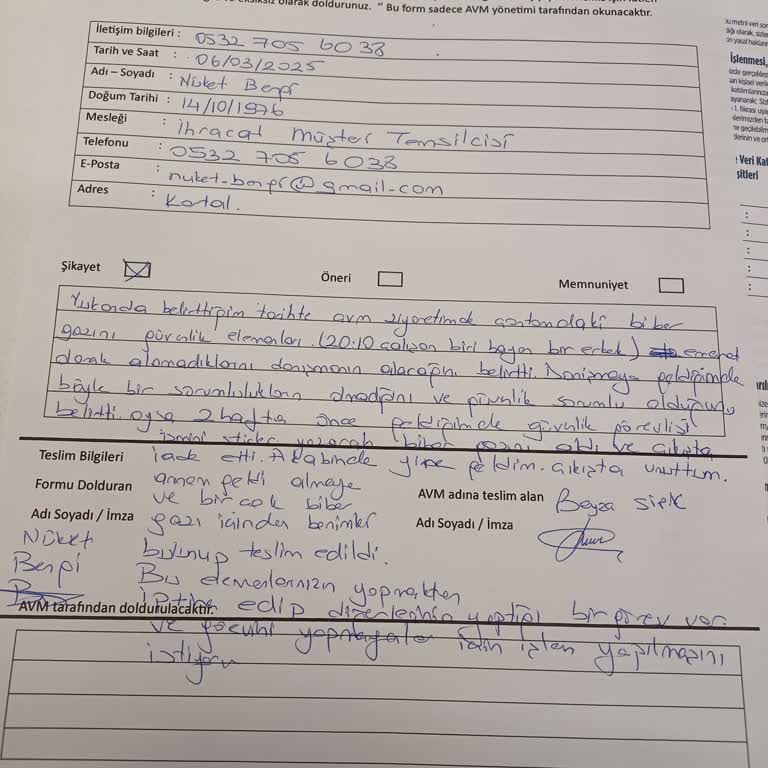 olarak doldurunuz. " Bu form sadece AVM yönetimi tarafından okunacaktır.
İletişim bilgileri : 0532 705 6038
Tarih ve Saat : 06/03/2025
Adı – Soyadı : Nüket Benpi
Doğum Tarihi : 14/10/1976
Mesleği : İhracat Müşteri Temsilcisi
Telefonu : 0532 705 6038
E-Posta : nuket-benpi@gmail.com
Adres : Kartal.
Şikayet
Öneri
Memnuniyet
Yukarıda belirttiğim tarihte avm ziyaretimde çantamdaki biber
gazını güvenlik elemanları (20:10 çalışan biri bayan bir erkek) emanet
olarak alamadıklarını danışmanın alacağını belirtti. Danışmaya geldiğimde
böyle bir sorumlulukların olmadığını ve güvenlik sorumlu olduğunu
belirtti. oysa 2 hafta önce geldiğimde güvenlik görevlisi
ismini sticker yazarak biber gazını aldı ve çıkışta
iade etti. Akabinde yine geldim. çıkışta unuttum.
Teslim Bilgileri
annem geldi almaya
Formu Dolduran
ve bir çok biber
AVM adına teslim alan
Beyza
Adı Soyadı / İmza
gazı içinden benimki
Adı Soyadı / İmza
Nüket
Benpi
bulunup teslim edildi.
Bu elemanlarınızın yapmaktan
edip diğerlerinin yaptığı bir görev var
AVM tarafından doldurulacaktır.
ve görevini yapmayanlar için işlem yapılmasını
istiyorum
İşlenmesi,
Veri